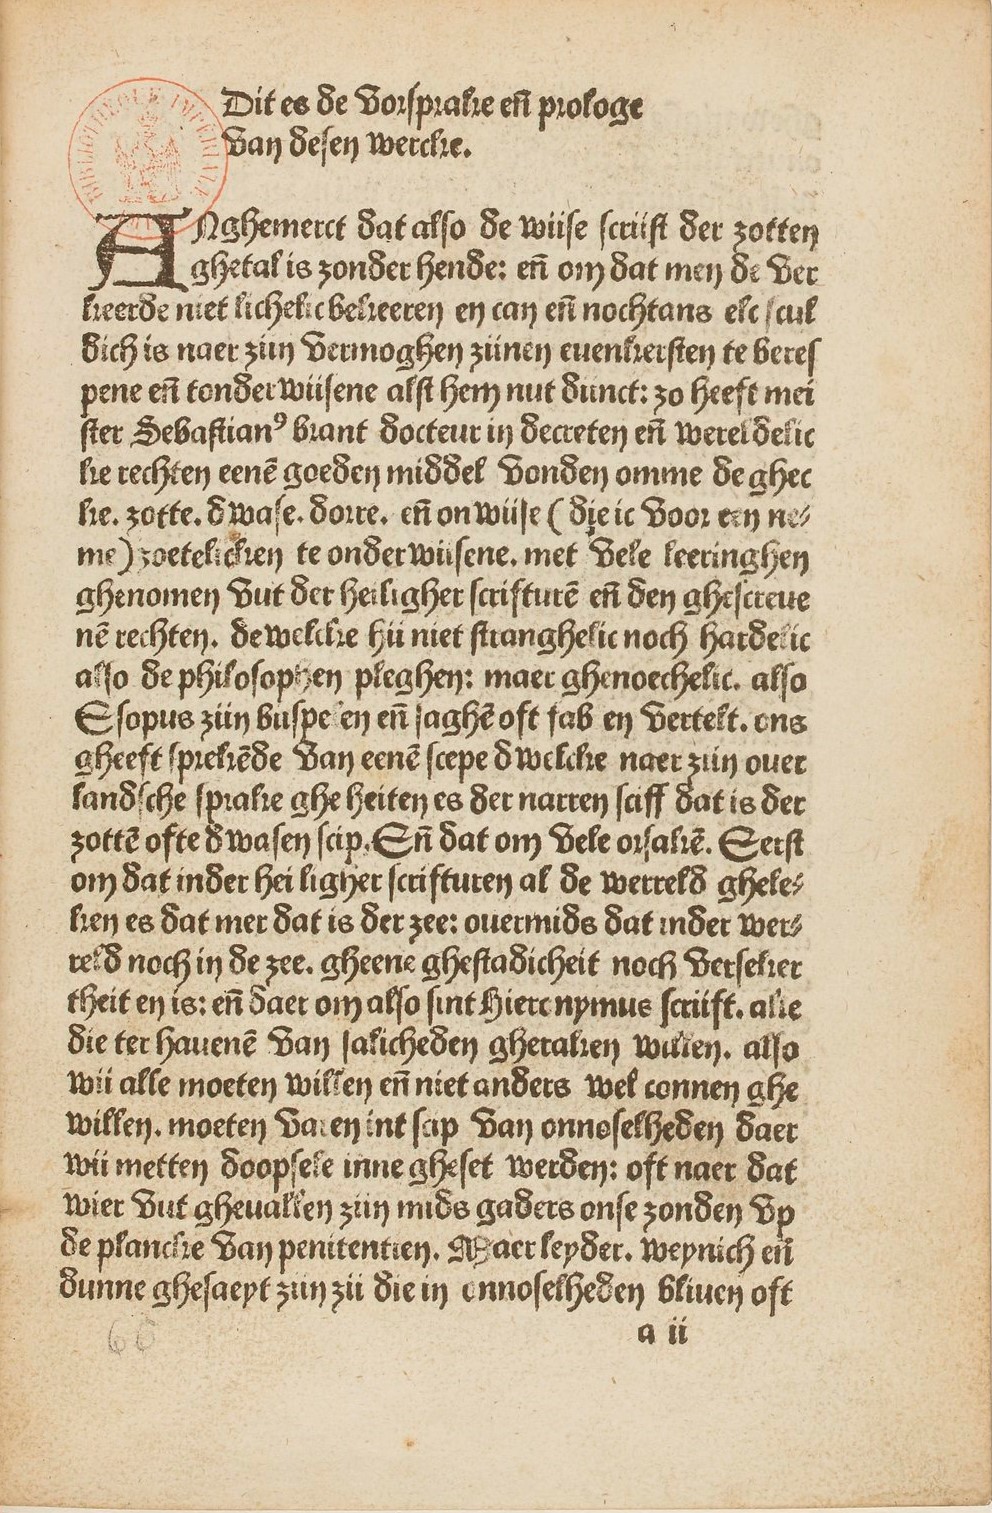 Dit es de vorsprake eñ prologe
van desen wercke.
BIBLIOTHEQUE IMPERIALE
ANghemerct dat also de wiise scriift der zotten
ghetal is zonder hende: eñ om dat men de ver
keerde niet lichelic bekeeren en can eñ nochtans elc scul
dich is naer ziin vermoghen ziinen euenkersten te beres
pene eñ tonderwiisene alst hem nut dunct: zo heeft mei
ster Sebastianꝰ brant docteur in decreten eñ wereldelic
ke rechten eenē goeden middel vonden omme de ghec
ke. zotte. dwase. dorre. eñ onwiise (die ic voor een ne⸗
me) zoetelicken te onderwiisene. met vele leeringhen
ghenomen vut der heiligher scrifturē eñ den ghescreue
nē rechten. dewelcke hii niet stranghelic noch hardelic
also de philosophen pleghen: maer ghenoechelic. also
Esopus ziin buspelen eñ saghē oft fab en vertelt. ons
gheeft sprekēde van eenē scepe dwelcke naer ziin ouer
landsche sprake ghe heiten es der narren sciff dat is der
zottē ofte dwasen scip. Eñ dat om vele orsakē. Eerst
om dat inder hei ligher scrifturen al de werreld ghele⸗
ken es dat mer dat is der zee: ouermids dat inder wer⸗
reld noch in de zee. gheene ghestadicheit noch verseker
theit en is: eñ daer om also sint Hieronymus scriift. alle
die ter hauenē van salicheden gheraken willen. also
wii alle moeten willen eñ niet anders wel connen ghe
willen. moeten varen int scip van onnoselheden daer
wii metten doopsele inne gheset werden: oft naer dat
wier vut gheuallen ziin mids gaders onse zonden vp
de plancke van penitentien. Maer leyder. weynich eñ
dunne ghesaeyt ziin zii die in onnoselheden bliuen oft
a ii
66